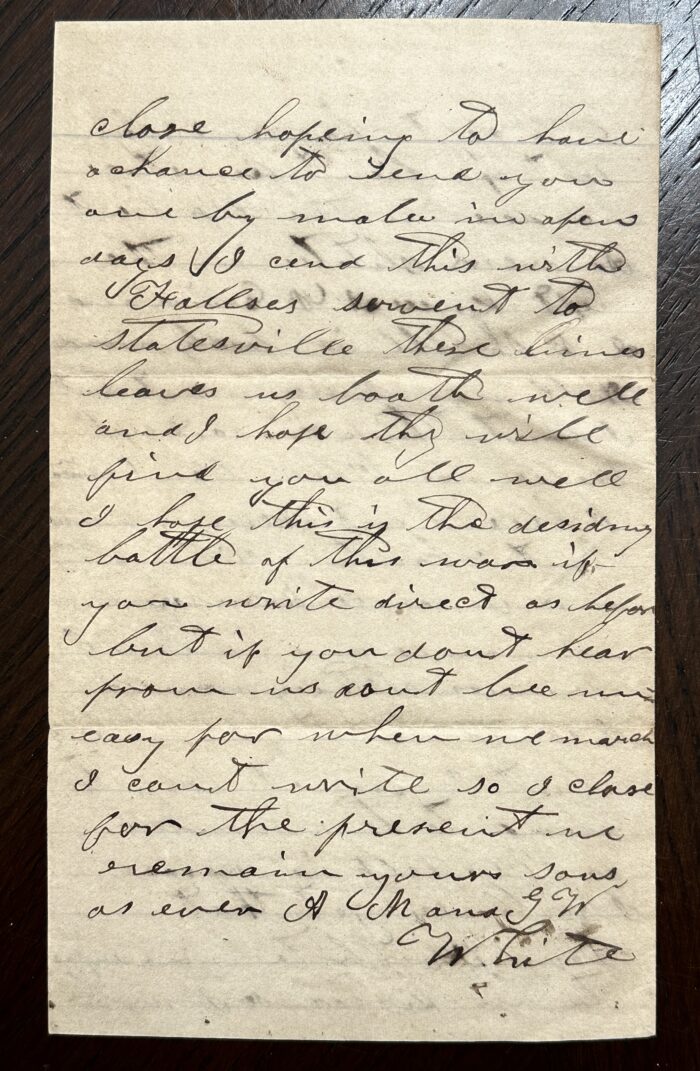 close hopeing to have
a chance to send you
one by male in a few
days I cend this with
servent to
statesville these lines
leaves us booth well
and I hope thy will
find you all well
I hope this is the desiding
battle of this war if
you write direct as befor
but if you dont hear
from us dont bee un
easy for when we march
I cant write so I close
for the present we
remain yours sons
as ever A M and G W
White